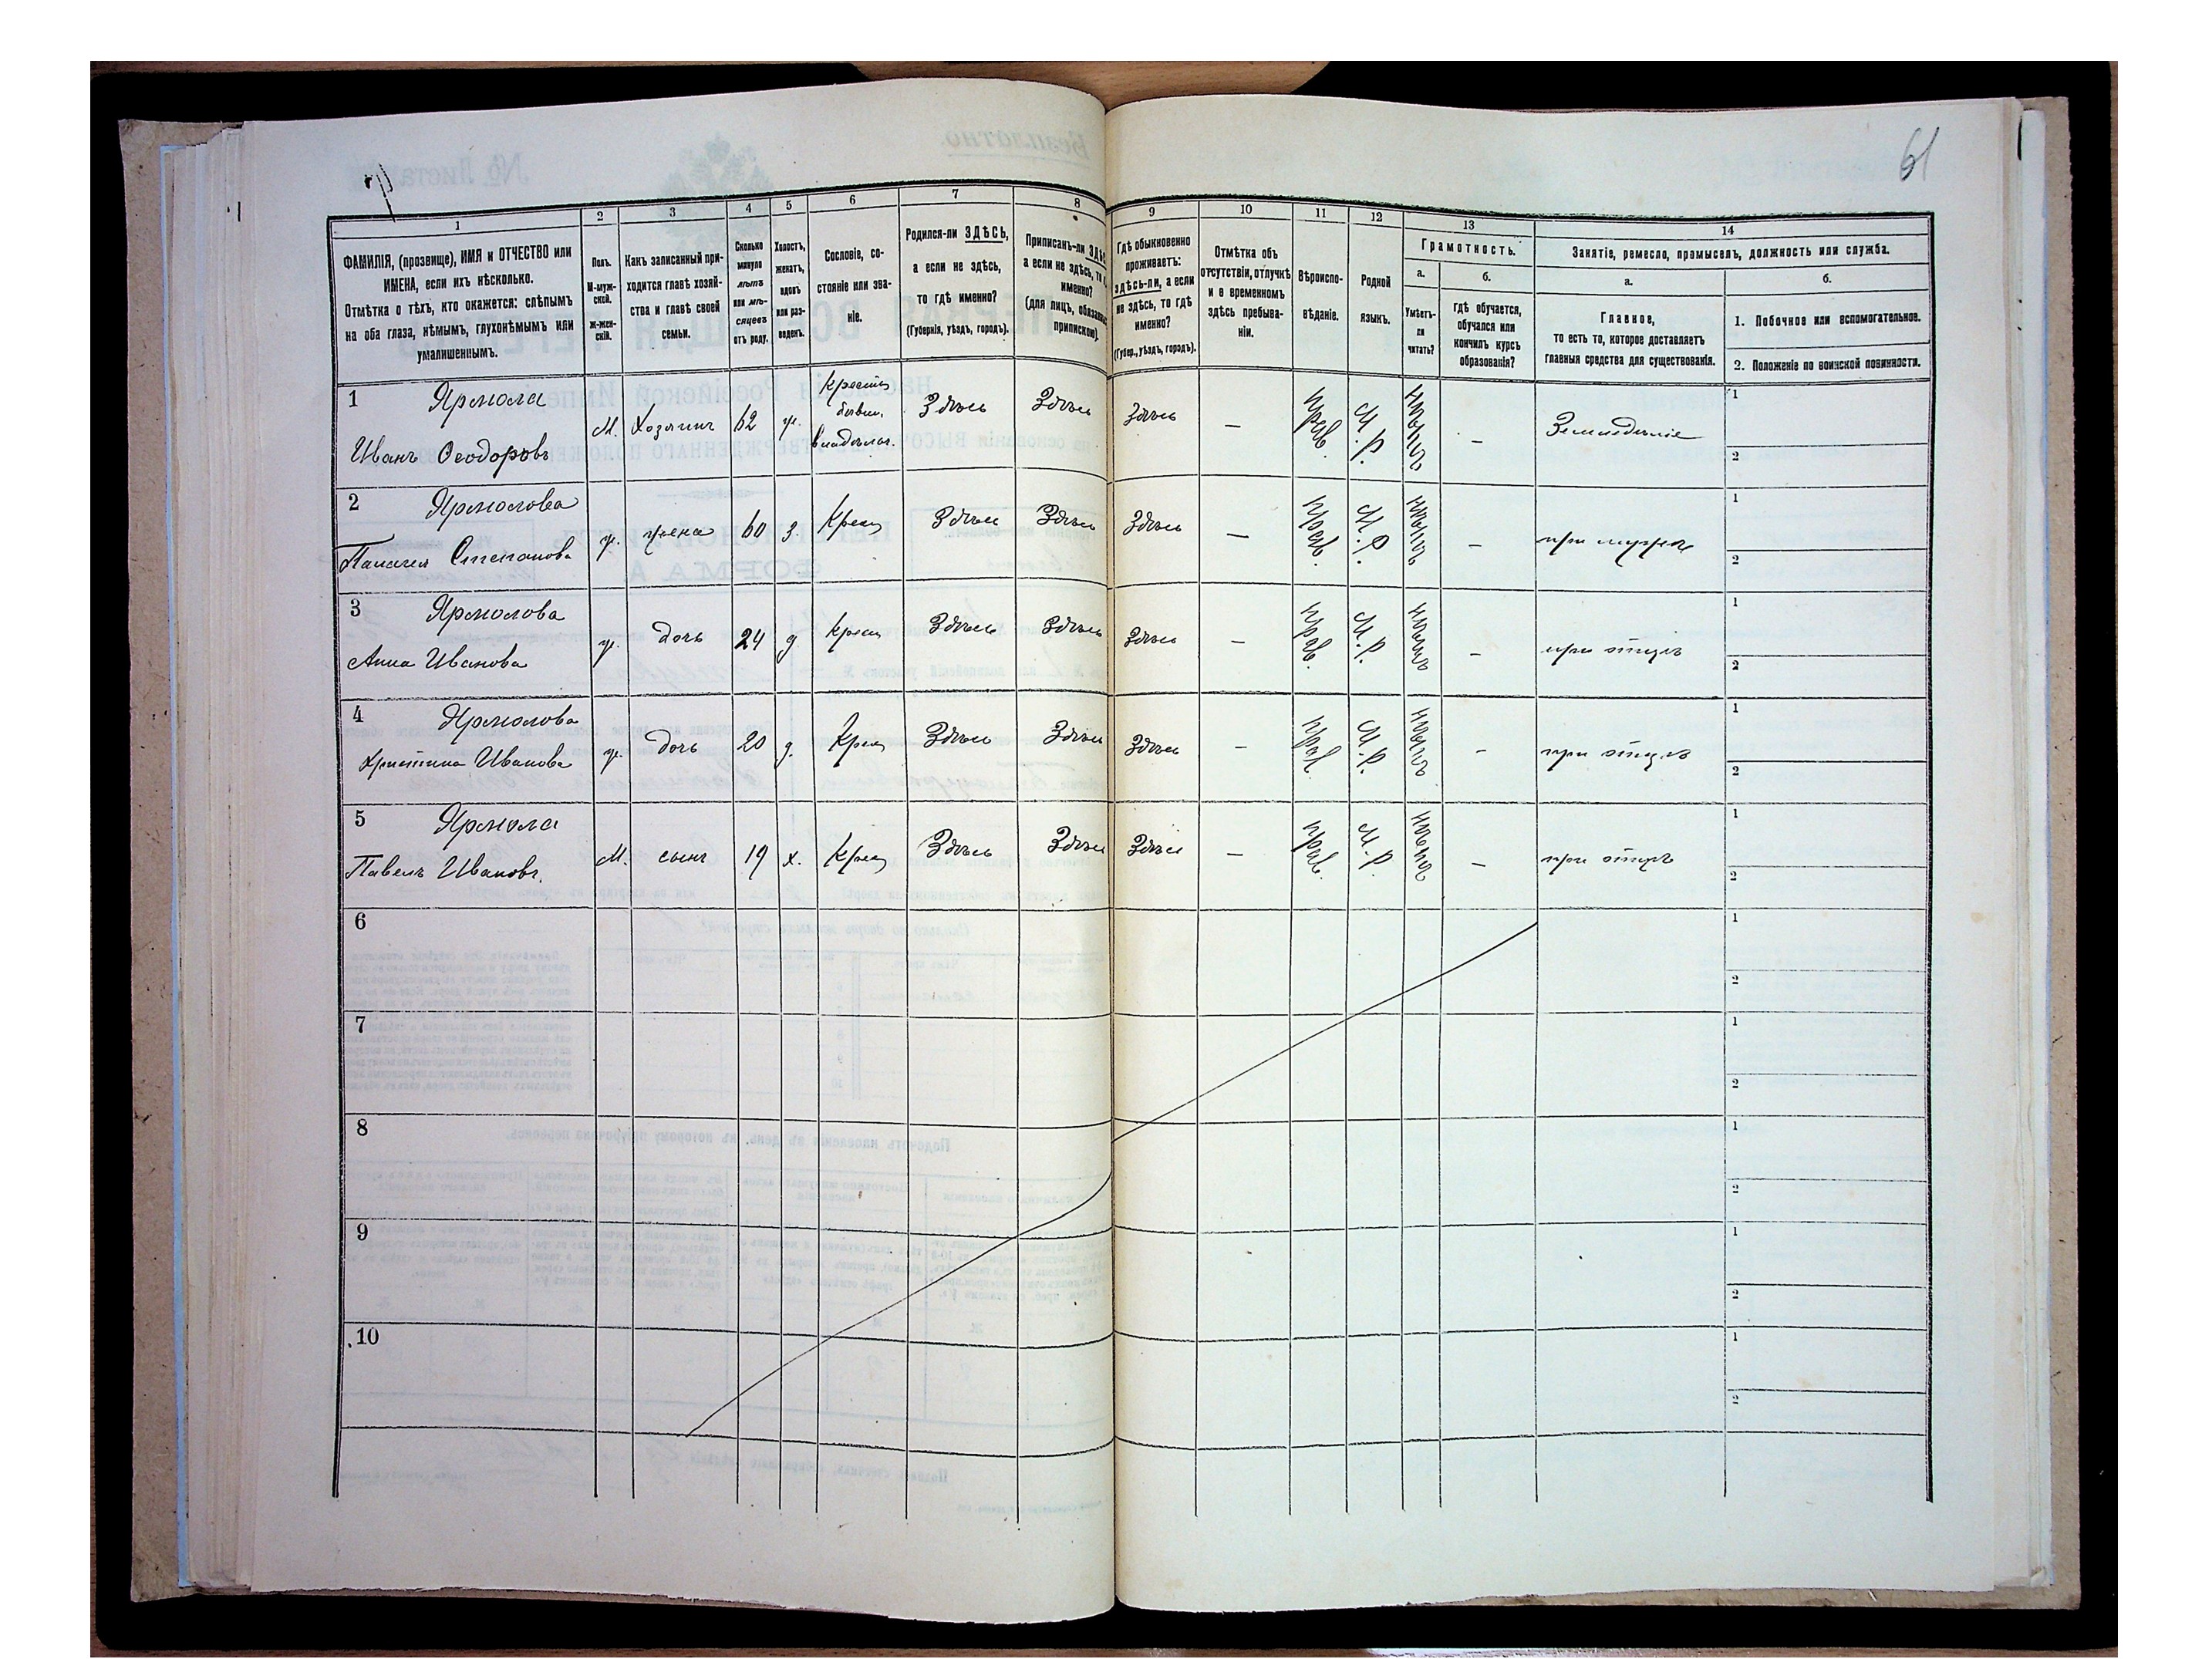 61
1
2
3
4
5
6
7
8
9
10
11
12
13
14
ФАМИЛІЯ, (прозвище), ИМЯ и ОТЧЕСТВО или
ИМЕНА, если ихъ нѣсколько.
Отмѣтка о тѣхъ, кто окажется: слѣпымъ
на оба глаза, нѣмымъ, глухонѣмымъ или
умалишеннымъ.
Полъ.
М-муж-
ской.
ж-жен-
скій.
Какъ записанный при-
ходится главѣ хозяй-
ства и главѣ своей
семьи.
Сколько
минуло
лѣтъ
или мѣ-
сяцевъ
отъ роду.
Холостъ,
женатъ,
вдовъ
или раз-
веденъ.
Сословіе, со-
стояніе или зва-
ніе.
Родился-ли ЗДѢСЬ,
а если не здѣсь,
то гдѣ именно?
(Губернія, уѣздъ, городъ).
Приписанъ-ли
а если не здѣсь,
именно?
(для лицъ,
припискою).
Гдѣ обыкновенно
проживаетъ:
здѣсь-ли, а если
не здѣсь, то гдѣ
именно?
(Губер., уѣздъ, городъ).
Отмѣтка объ
отсутствіи, отлучкѣ
и о временномъ
здѣсь пребыва-
ніи.
Вѣроиспо-
вѣданіе.
Родной
языкъ.
Грамотность.
а.
б.
Умѣетъ-
ли
читать?
Гдѣ обучается,
обучался или
кончилъ курсъ
образованія?
Занятіе, ремесло, промыселъ, должность или служба.
а.
б.
Главное,
то есть то, которое доставляетъ
главныя средства для существованія.
1. Побочное или вспомогательное.
2. Положеніе по воинской повинности.
1 Ярмола
Иванъ Ѳеодоровъ
М. Хозяинъ 62 ж.
Здѣсь Здѣсь Здѣсь — Прав. М.Р. — Земледѣліе
1
2
2 Ярмолова
Степанова
ж. жена 60 з. Крест Здѣсь Здѣсь Здѣсь — Прав. М.Р. — при мужѣ
1
2
3 Ярмолова
Анна Иванова
ж. дочь 24 д Крест Здѣсь Здѣсь Здѣсь — Прав. М.Р. — при отцѣ
1
2
4 Ярмолова
Христина Иванова
ж. дочь 20 д. Крест Здѣсь Здѣсь Здѣсь — Прав. М.Р. — при отцѣ
1
2
5 Ярмола
Павелъ Ивановъ.
М. сынъ 19 х. Крест Здѣсь Здѣсь Здѣсь — Прав. М.Р. — при отцѣ
1
2
6
1
2
7
1
2
8
1
2
9
1
2
10
1
2